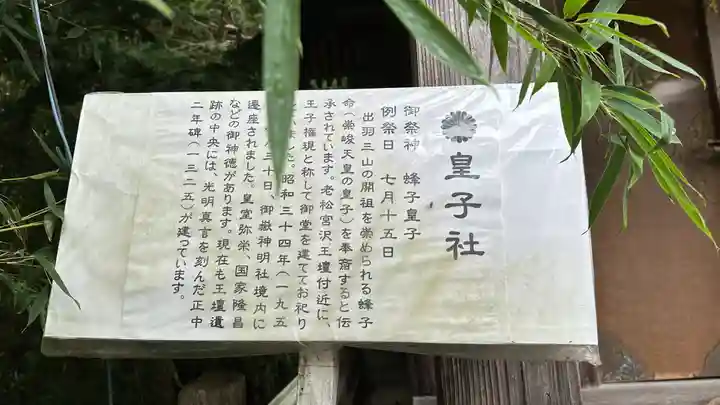 皇子社
御祭神 蜂子皇子
例祭日 七月十五日
出羽三山の開祖を崇められる蜂子
命(崇峻天皇の皇子)を奉斎すると伝
承されています。老松宮沢王壇付近に、
王子権現と称して御堂を建ててお祀り
ました。昭和三十四年(一九五
月三十日、御嶽神明社境内に
遷座されました。皇室弥栄、国家隆昌
などの御神徳があります。現在も王壇遺
跡の中央には、光明真言を刻んだ正中
二年碑(一三二五)が建っています。